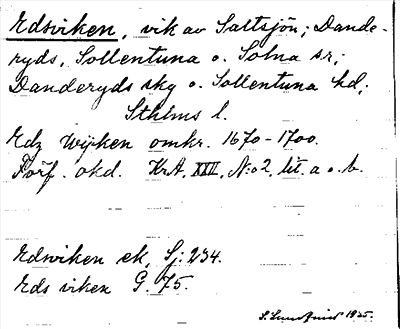 Edsviken, vik av Saltsjön; Dande-
ryds, Sollentuna o. Solna sr;
Danderyds skg o. Sollentuna hd;
Sthlms l.
Edz Wijken omkr. 1670-1700.
Förf. okd. KrA, XXII, N:o 2, lit. a o. b.
Edsviken ek, Sj: 234.
Eds viken G. 75.
S. 1925.